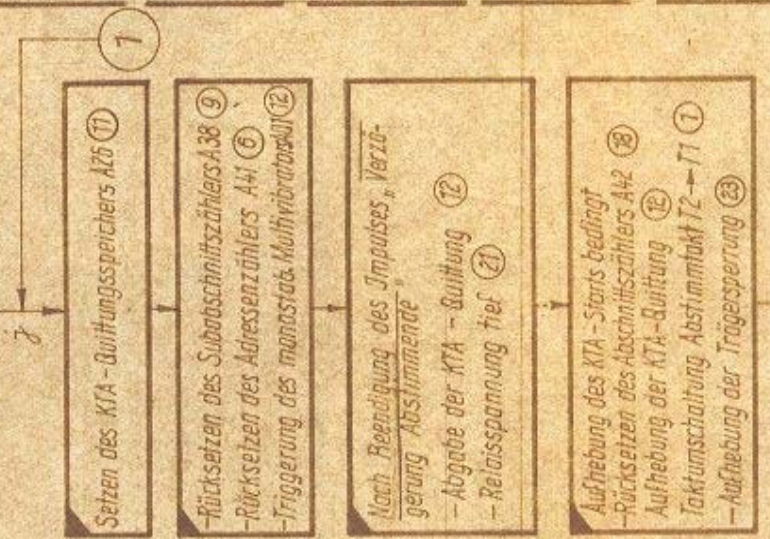 1
j
Setzen des KTA-Quittungsspeichers A26 (11)
-Rücksetzen des Subabschnittszählers A38 (9)
-Rücksetzen des Adressenzählers A41 (6)
-Triggerung des monostab. Multivibrators A01 (12)
Nach Beendigung des Impulses „Verzö-
gerung Abstimmende"
- Abgabe der KTA - Quittung (12)
- Relaisspannung tief (21)
Aufhebung des KTA-Starts bedingt
-Rücksetzen des Abschnittszählers A42 (18)
Aufhebung der KTA-Quittung (12)
Taktumschaltung Abstimmtakt T2→T1 (1)
-Aufhebung der Trägersperrung (23)